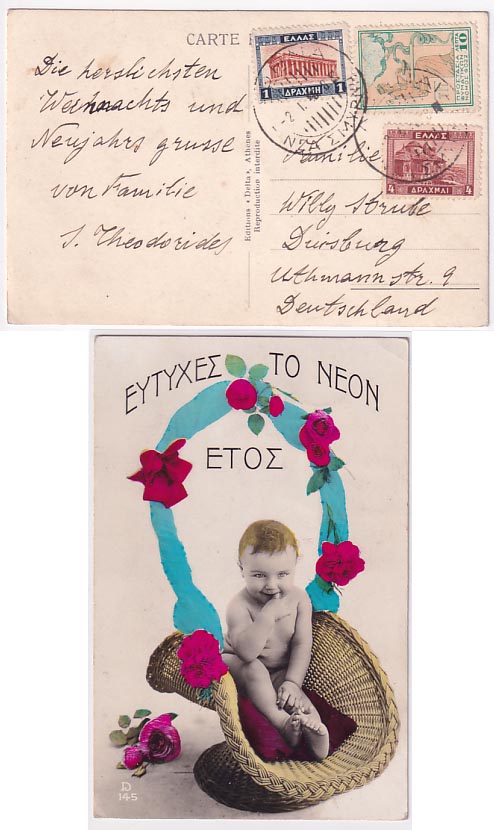 CARTE
Die herslichsten
Weihnachts und
Neujahrs grusse
von Familie
S. Theodorides
Editions «Delta», Athènes
Reproduction interdite
ΕΛΛΑΣ
1 ΔΡΑΧΜΗ 1
10
ΕΛΛΑΣ
4 ΔΡΑΧΜΑΙ 4
ΝΕΑ ΣΜΥΡΝΗ
Familie
Willy Strube
Duisburg
Uthmannstr. 9
Deutschland
ΕΥΤΥΧΕΣ ΤΟ ΝΕΟΝ
ΕΤΟΣ
D
145